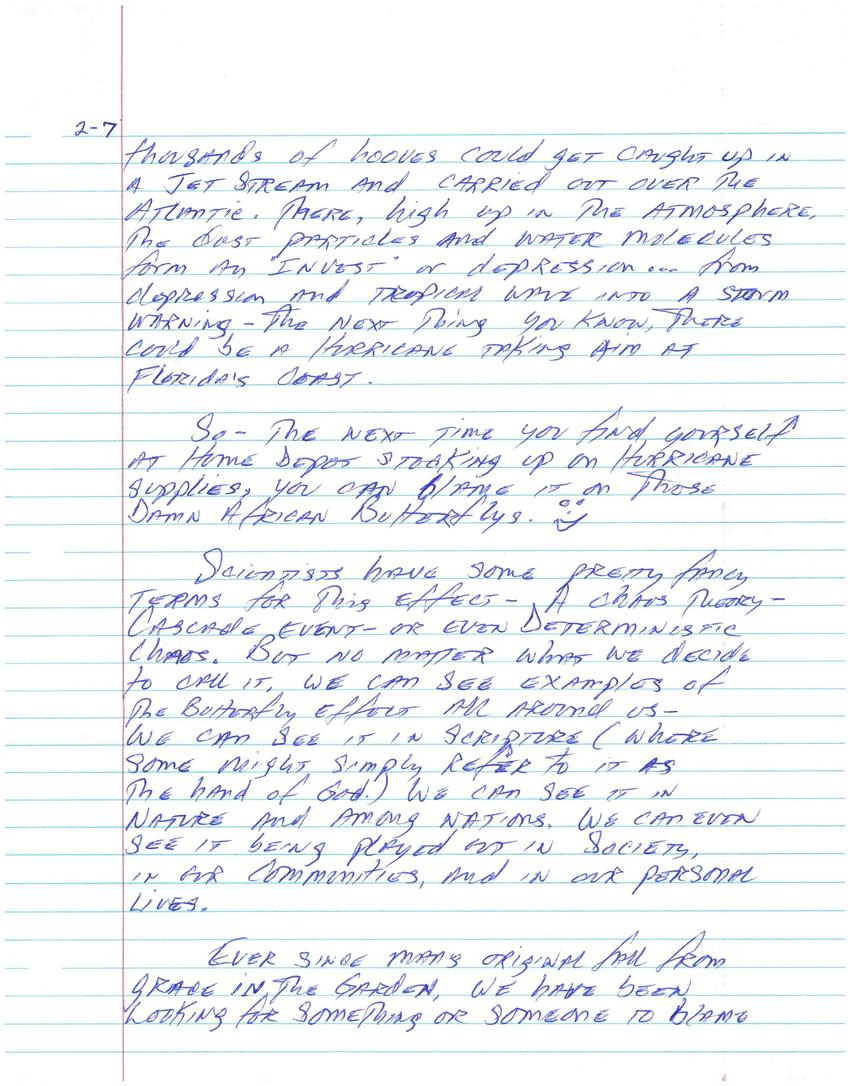 2-7
thousands of hooves could get caught up in
a jet stream and carried out over the
Atlantic. There, high up in the atmosphere,
the dust particles and water molecules
form an "Invest" or depression... from
depression and tropical wave into a storm
warning - the next thing you know, there
could be a hurricane taking aim at
Florida's coast.
So - the next time you find yourself
at Home Depot stocking up on hurricane
supplies, you can blame it on those
damn African Butterflys. :)
Scientists have some pretty fancy
terms for this effect - A chaos theory -
Cascade event - or even Deterministic
chaos. But no matter what we decide
to call it, we can see examples of
the Butterfly effect all around us -
we can see it in scripture (where
some might simply refer to it as
the hand of God.) We can see it in
nature and among nations. We can even
see it being played out in society,
in our communities, and in our personal
lives.
Ever since mans original fall from
grace in the Garden, we have been
looking for something or someone to blame